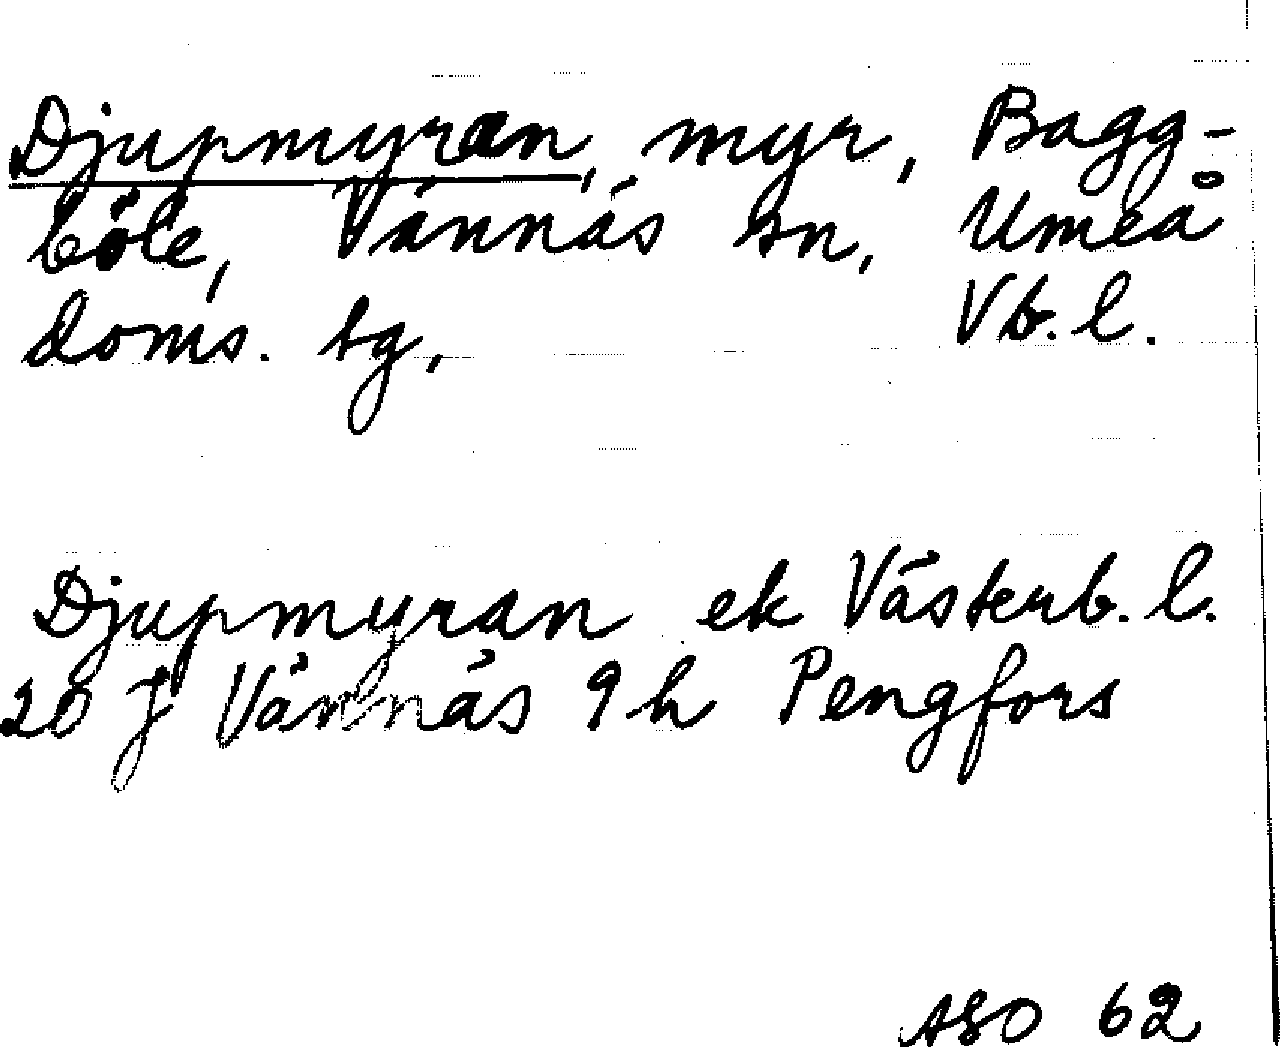 Djupmyran, myr, Bagg-
böle, Vännäs sn, Umeå
doms. tg, Vb. l.
Djupmyran ek Västerb. l.
20 J Vännäs 9 h Pengfors
ASO 62